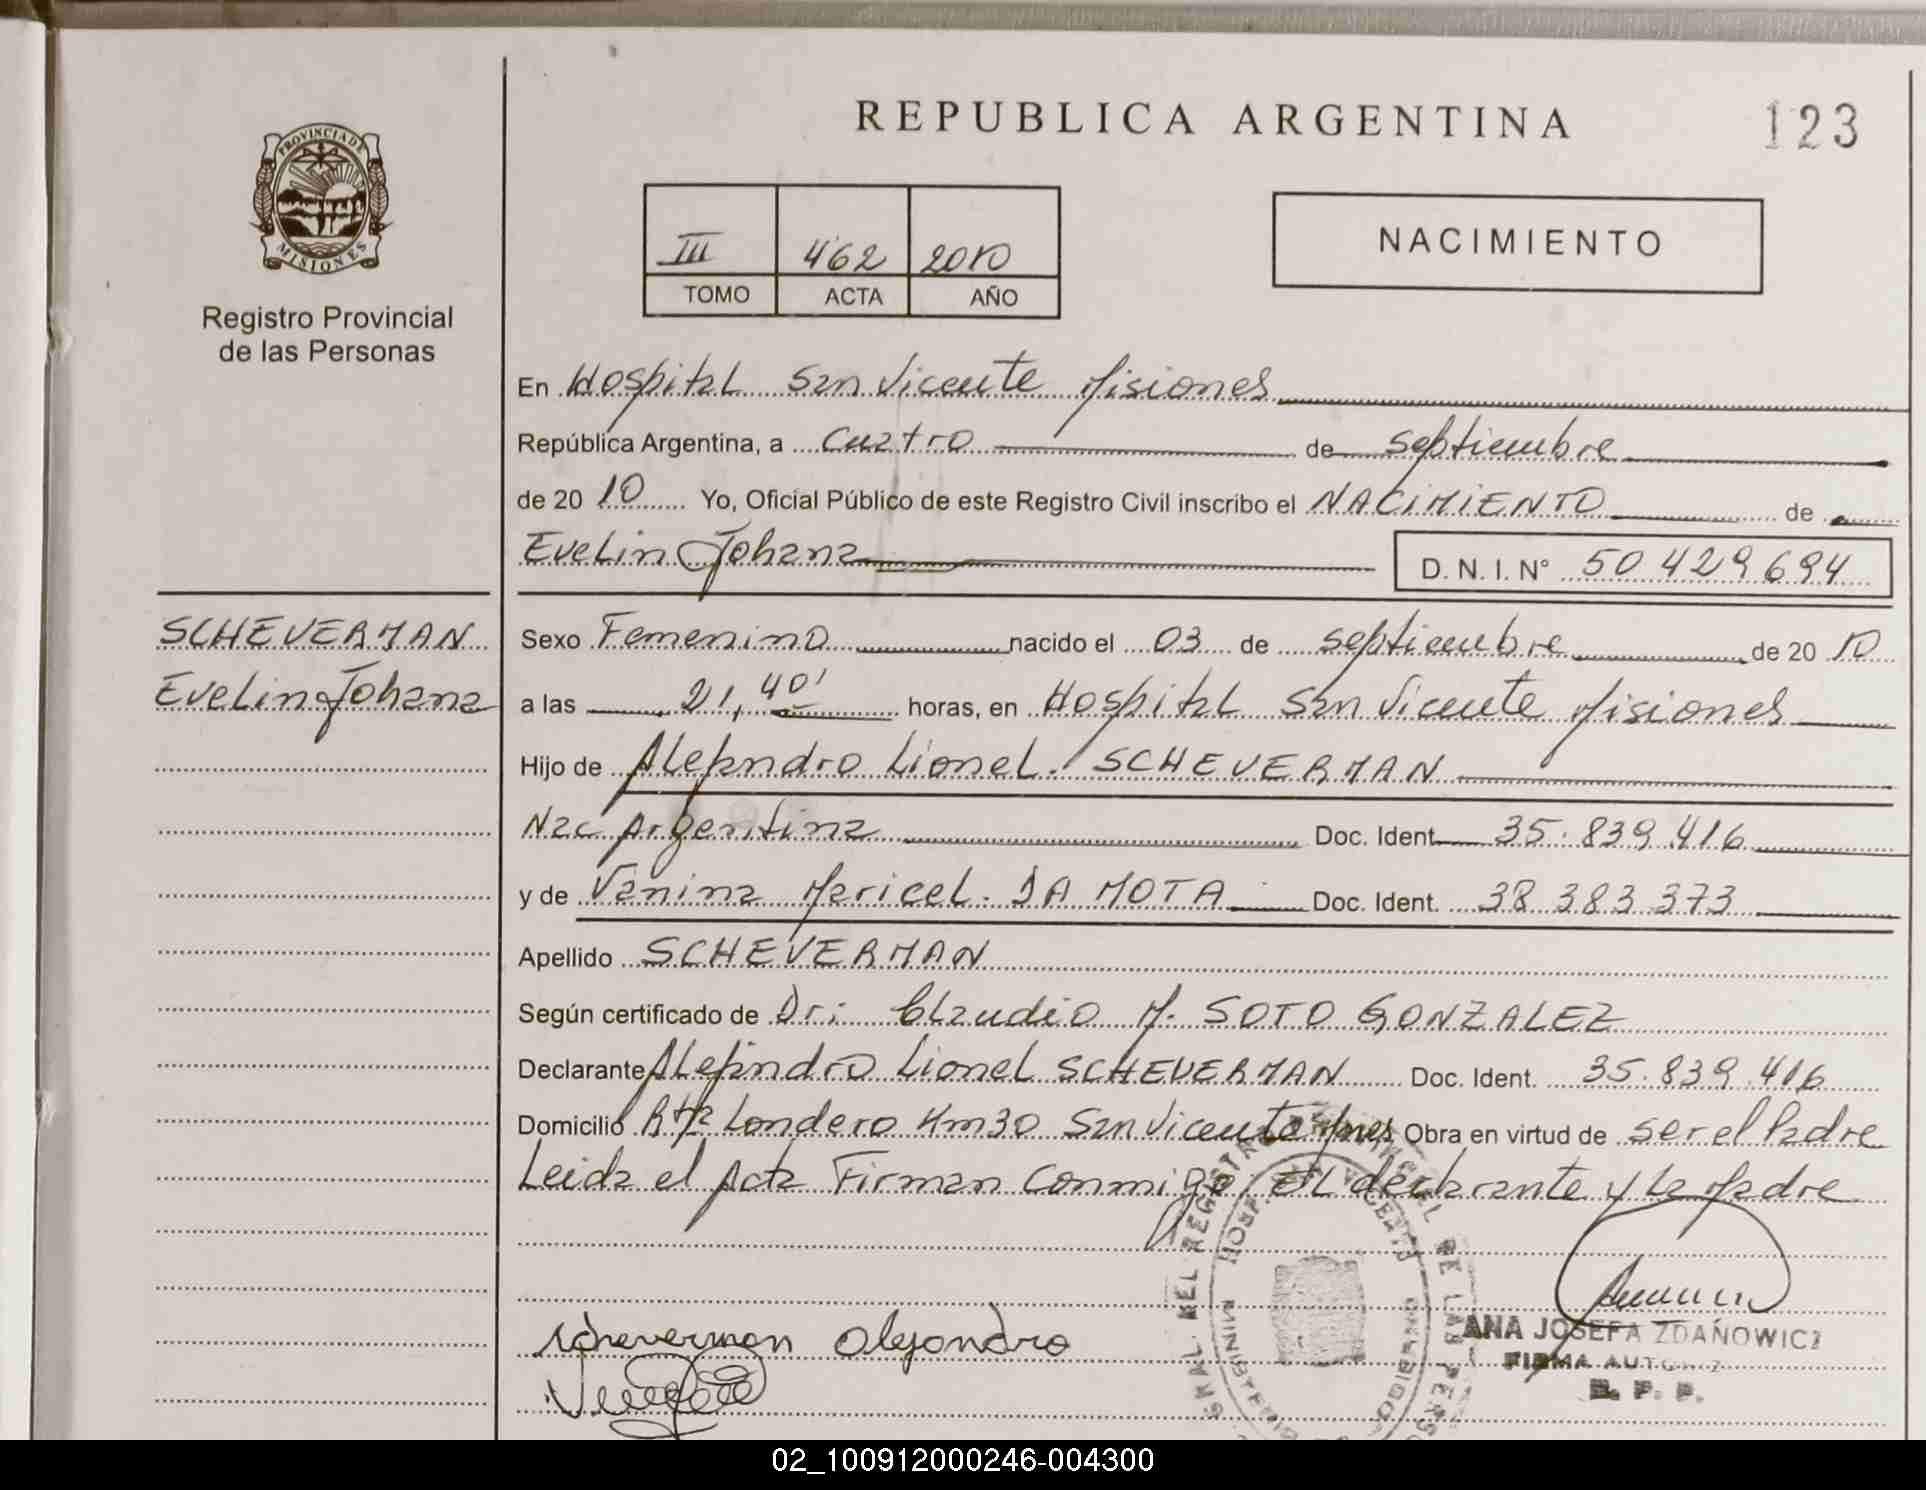 PROVINCIA DE
MISIONES
Registro Provincial
de las Personas
SCHEVERMAN
Evelin Johana
REPUBLICA ARGENTINA
123
III 462 2010
TOMO ACTA AÑO
NACIMIENTO
En Hospital San Vicente Misiones
República Argentina, a cuatro de septiembre
de 20 10 Yo, Oficial Público de este Registro Civil inscribo el NACIMIENTO de
Evelin Johana D. N. I. N° 50 429 694
Sexo Femenino nacido el 03 de septiembre de 20 10
a las 21,40' horas, en Hospital San Vicente Misiones
Hijo de Alejandro Lionel. SCHEVERMAN
Nac Argentina Doc. Ident 35.839.416
y de Vanina Maricel. DA MOTA Doc. Ident. 38 383 373
Apellido SCHEVERMAN
Según certificado de Dr: Claudio M. SOTO GONZALEZ
Declarante Alejandro Lionel SCHEVERMAN Doc. Ident. 35.839.416
Domicilio Rta Londero Km30 San Vicente Mnes Obra en virtud de ser el Padre
Leida el Acta Firman Conmigo. El declarante y la Madre
Scheverman Alejandro
ANA JOSEFA ZDAÑOWICZ
FIRMA AUTORIZ
R. P. P.
02_100912000246-004300